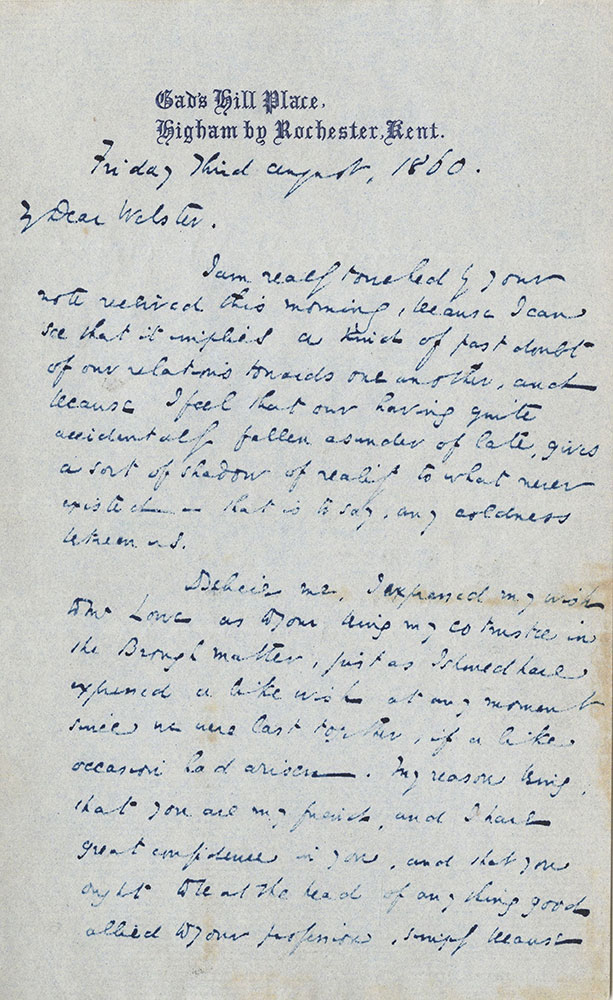 Gad's Hill Place,
Higham by Rochester, Kent.
Friday Third August, 1860.
My Dear Webster.
I am really touched by your
note received this morning, because I can
see that it implies a kind of past doubt
of our relations towards one another, and
because I feel that our having quite
accidentally fallen asunder of late, gives
a sort of shadow of reality to what never
existed — that is to say, any coldness
between us.
Believe me, I expressed my wish
to Mr Lowe as to your being my co trustee in
the Brough matter, just as I should have
expressed a like wish at any moment
since we were last together, if a like
occasion had arisen. My reason being,
that you are my friend, and I have
great confidence in you, and that you
ought to be at the head of any thing good
allied to your profession, simply because